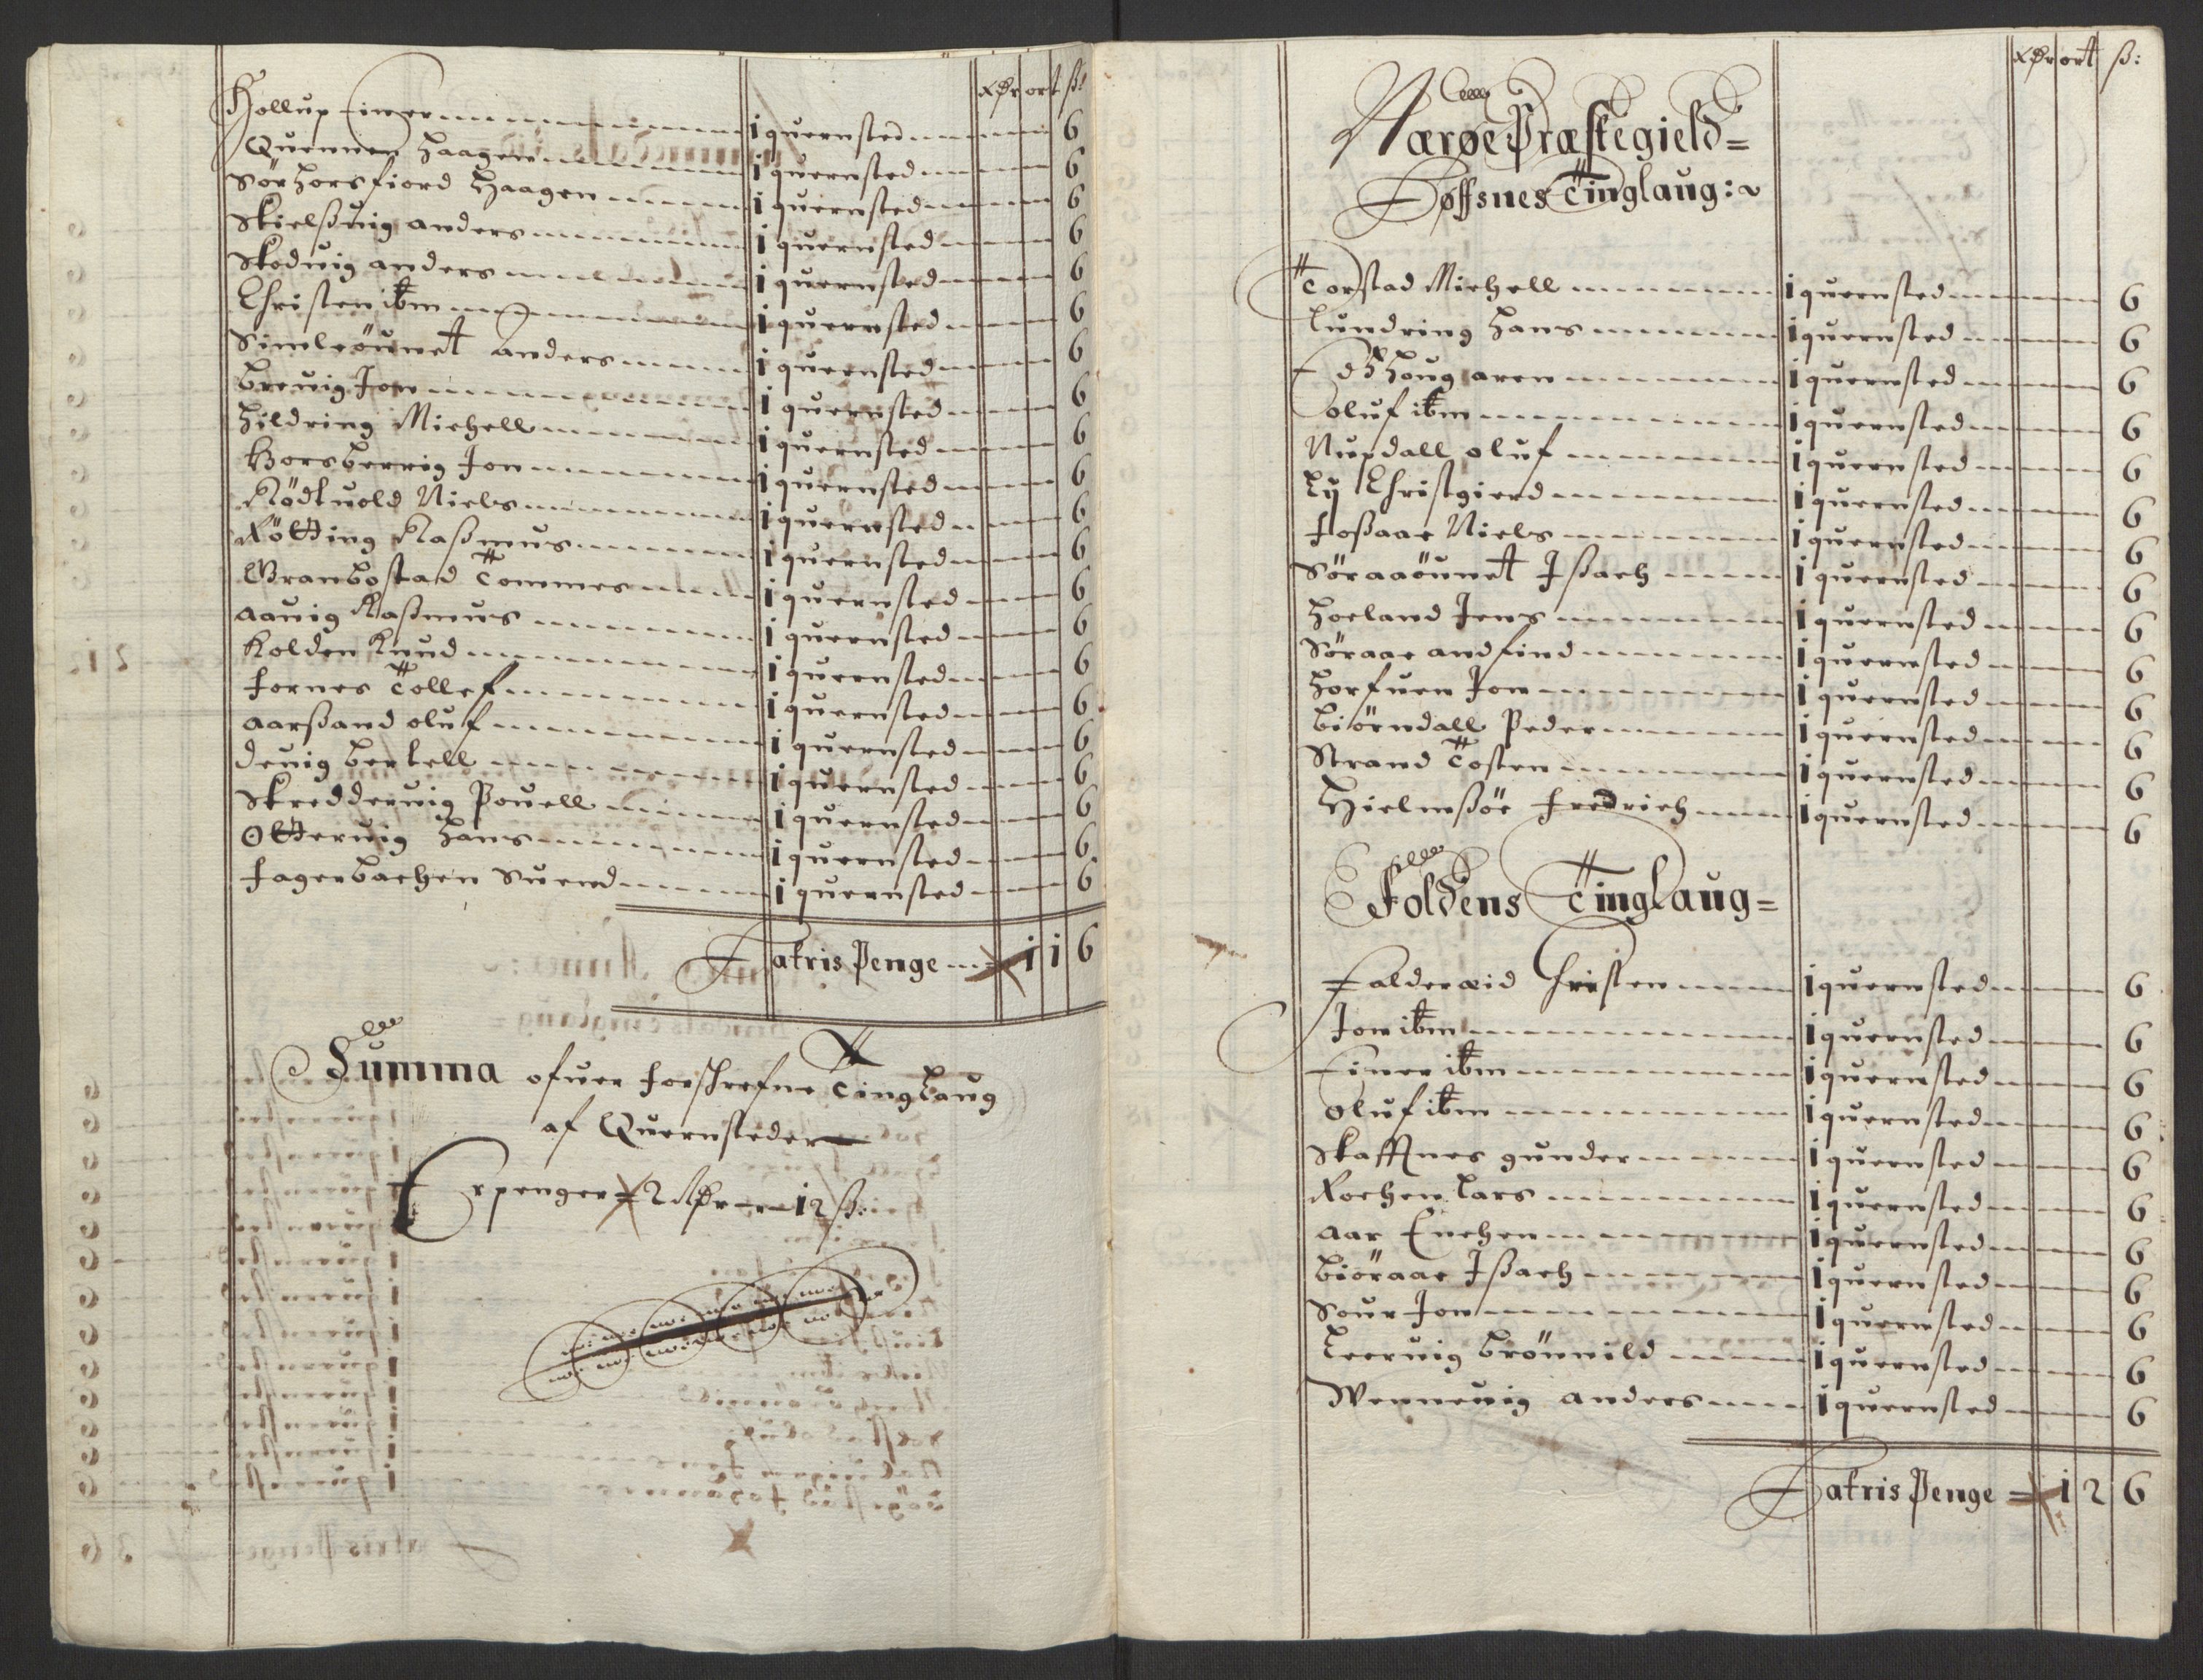 xdr ort ß:
Hollup Einer 1 quernsted 6
Quennen Haagen 1 quernsted 6
Sörhorsfiord Haagen 1 quernsted 6
Skielßuig anders 1 quernsted 6
Skoduig anders 1 quernsted 6
Christen ibm 1 quernsted 6
Simleöunet Anders 1 quernsted 6
breuig Jon 1 quernsted 6
Hildring Michell 1 quernsted 6
Horsberrig Jon 1 quernsted 6
Rödtuold Niels 1 quernsted 6
Rötting Raßmus 1 quernsted 6
Granbostad Tommes 1 quernsted 6
Aauig Raßmus 1 quernsted 6
Kolden Knud 1 quernsted 6
Fornes Tollef 1 quernsted 6
Aarßand oluf 1 quernsted 6
deuig bertell 1 quernsted 6
Skredderuig Pouell 1 quernsted 6
Otteruig Hans 1 quernsted 6
Fagerbachen Suend 1 quernsted 6
Latris Penge 1 1 6
Summa ofuer forschrefne Tinglaug
af Quernsteder
Er penger 2 Rdr 12 ß:
xdr ort ß:
Nærøe Præstegield=
Föffsnes Tinglaug:
Torstad Michell 1 quernsted 6
Lundring Hans 1 quernsted 6
Houg aren 1 quernsted 6
oluf ibm 1 quernsted 6
Nupdall oluf 1 quernsted 6
Ly Christgierd 1 quernsted 6
Foßaae Niels 1 quernsted 6
Söraaöunet Jßach 1 quernsted 6
Hoeland Jens 1 quernsted 6
Söraae andfind 1 quernsted 6
Horfuen Jon 1 quernsted 6
biörndall Peder 1 quernsted 6
Strand Tosten 1 quernsted 6
Hielmßöe Fredrich 1 quernsted 6
Foldens Tinglaug=
Falderæid Christen 1 quernsted 6
Jon ibm 1 quernsted 6
Einer ibm 1 quernsted 6
Oluf ibm 1 quernsted 6
Skaffnes gunder 1 quernsted 6
Rochen Lars 1 quernsted 6
Aar Enchen 1 quernsted 6
biöraae Jßach 1 quernsted 6
Sour Jon 1 quernsted 6
Leeruig brönnild 1 quernsted 6
Wenneuig anders 1 quernsted 6
Latris Penge = 1 2 6